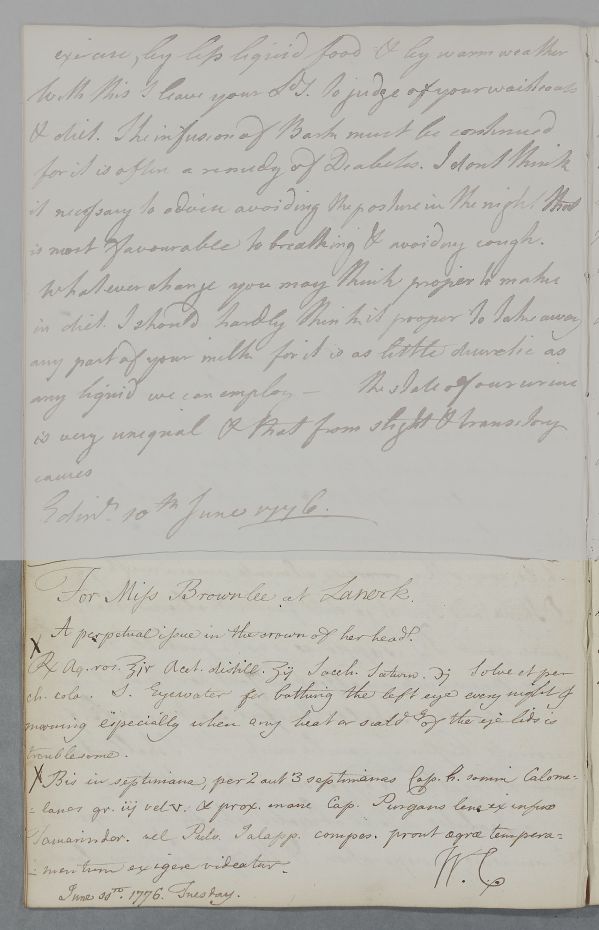 exercise, by less liquid food & by warm weather
With this I leave your LdS. to judge of your waistcoats
& diet. The infusion of Bark must be continued
for it is often a remedy of Diabetes. I dont think
it necessary to advise avoiding the posture in the night that
is most favourable to breathing & avoiding cough.
Whatever change you may think proper to make
in diet. I should hardly think it proper to take away
any part of your milk for it is as little diuretic as
any liquid we can employ — the state of our urine
is very unequal & that from slight & transitory
causes
Edinr. 10th June 1776.
For Miss Brownlee at Lanerk.
A perpetual issue in the crown of her head.
℞ Aq. ros. ℥iv Acet. distill. ʒij Sacch. Saturn. ℈j Solve et per
ch. cola. S. Eyewater for bathing the left eye every night &
morning especially when any heat or of the eye lids is
troublesome.
Bis in septimana, per 2 aut 3 septimanas Cap. h. somni Calome-
-lanos gr. iij vel v. & prox. mane Cap. Purgans len. ex infuso
Tamarindor. vel Pulv. Jalapp. compos. prout ægræ tempera-
-mentum exigere videatur.
W. C
June 11th. 1776. Tuesday.